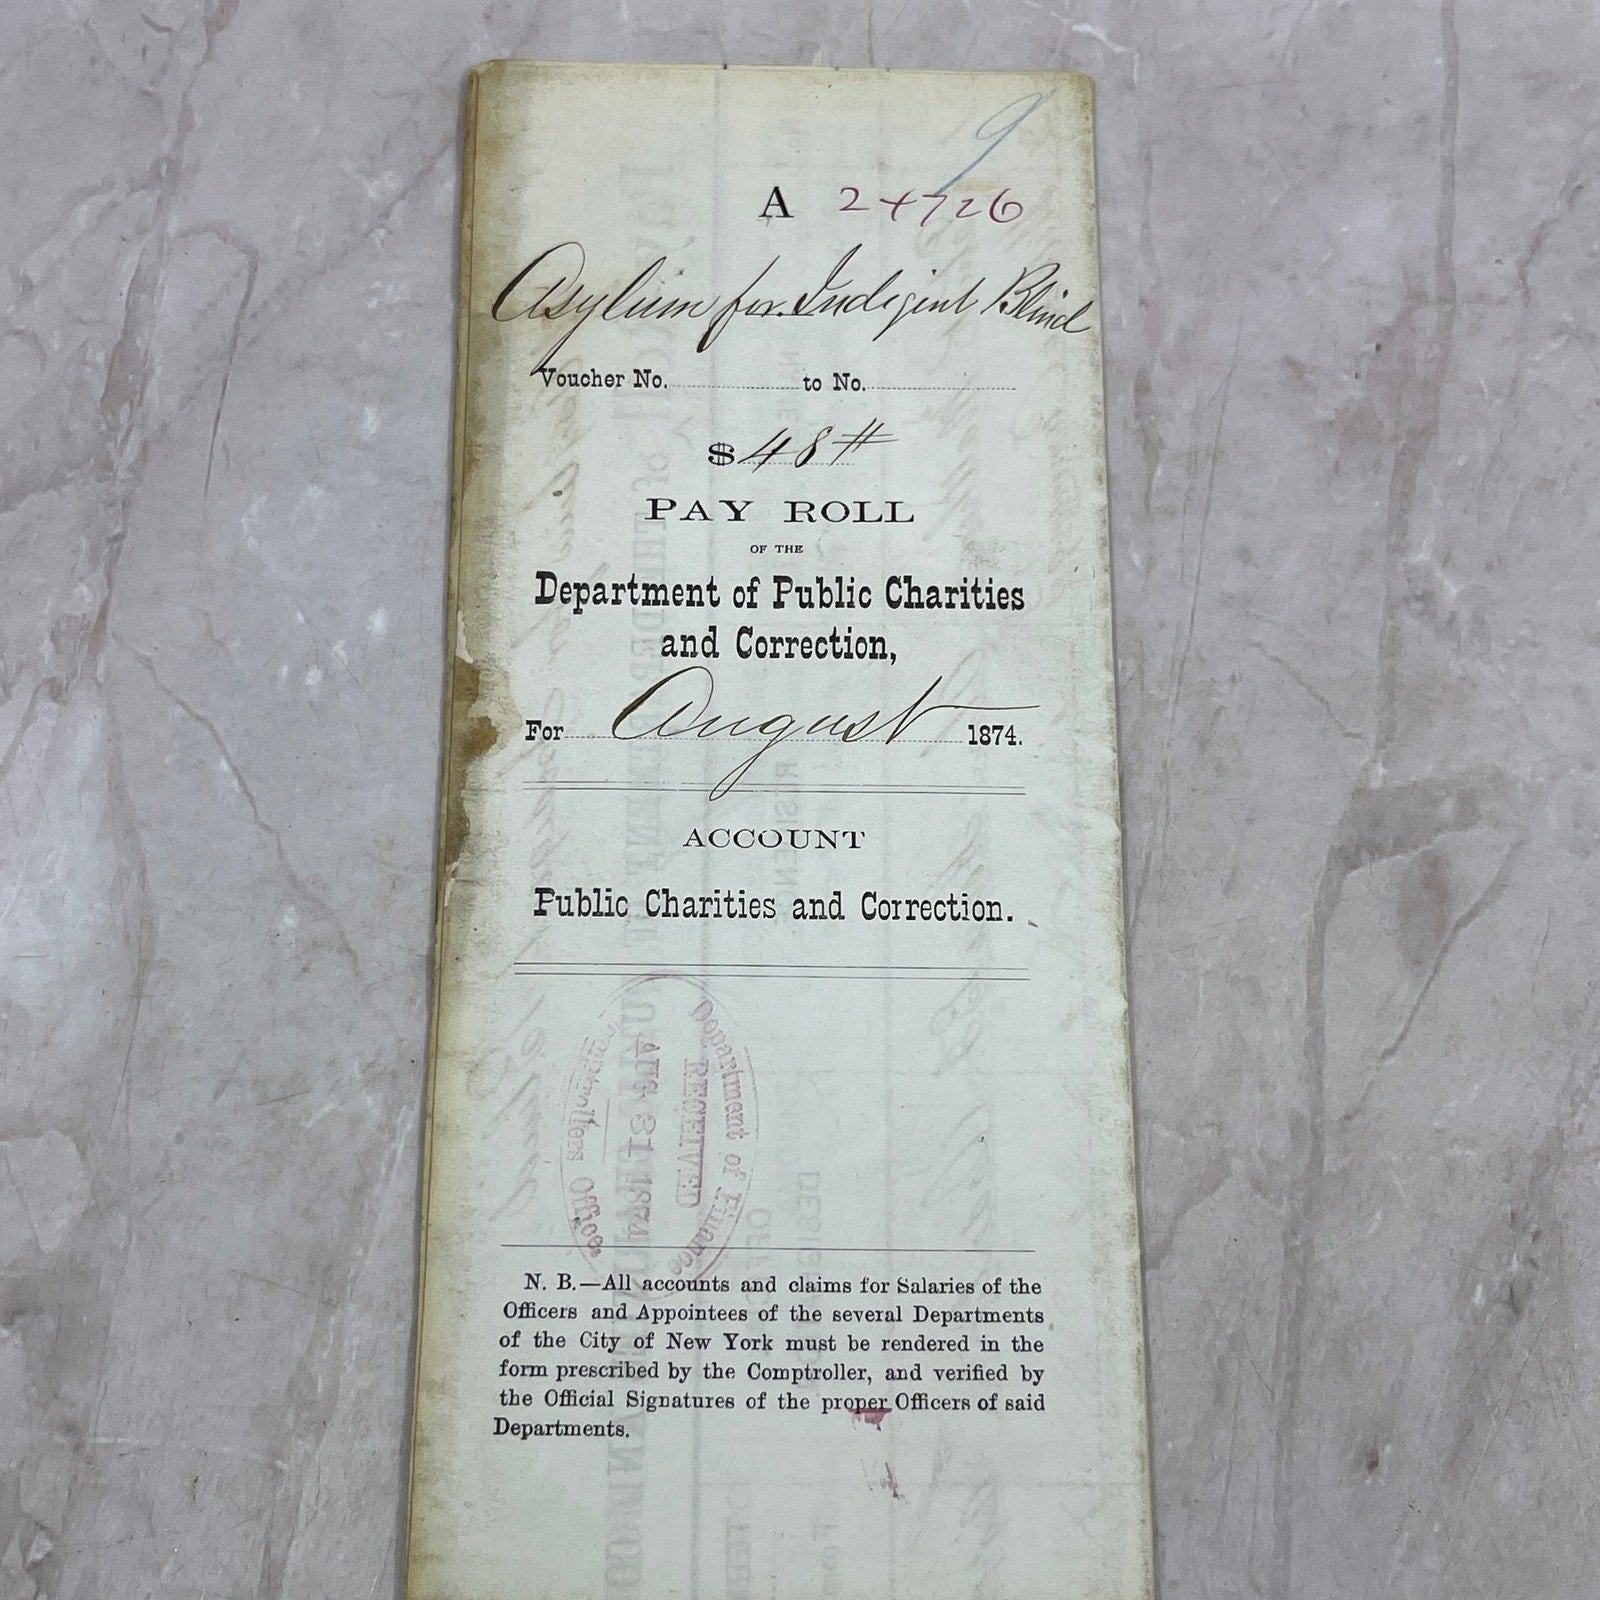 9
A 24726
Asylum for Indigent Blind
Voucher No. to No.
$ 48
PAY ROLL
OF THE
Department of Public Charities
and Correction,
For August 1874.
ACCOUNT
Public Charities and Correction.
Department of Finance
RECEIVED
AUG 31 1874
Comptrollers Office.
N. B.—All accounts and claims for Salaries of the
Officers and Appointees of the several Departments
of the City of New York must be rendered in the
form prescribed by the Comptroller, and verified by
the Official Signatures of the proper Officers of said
Departments.